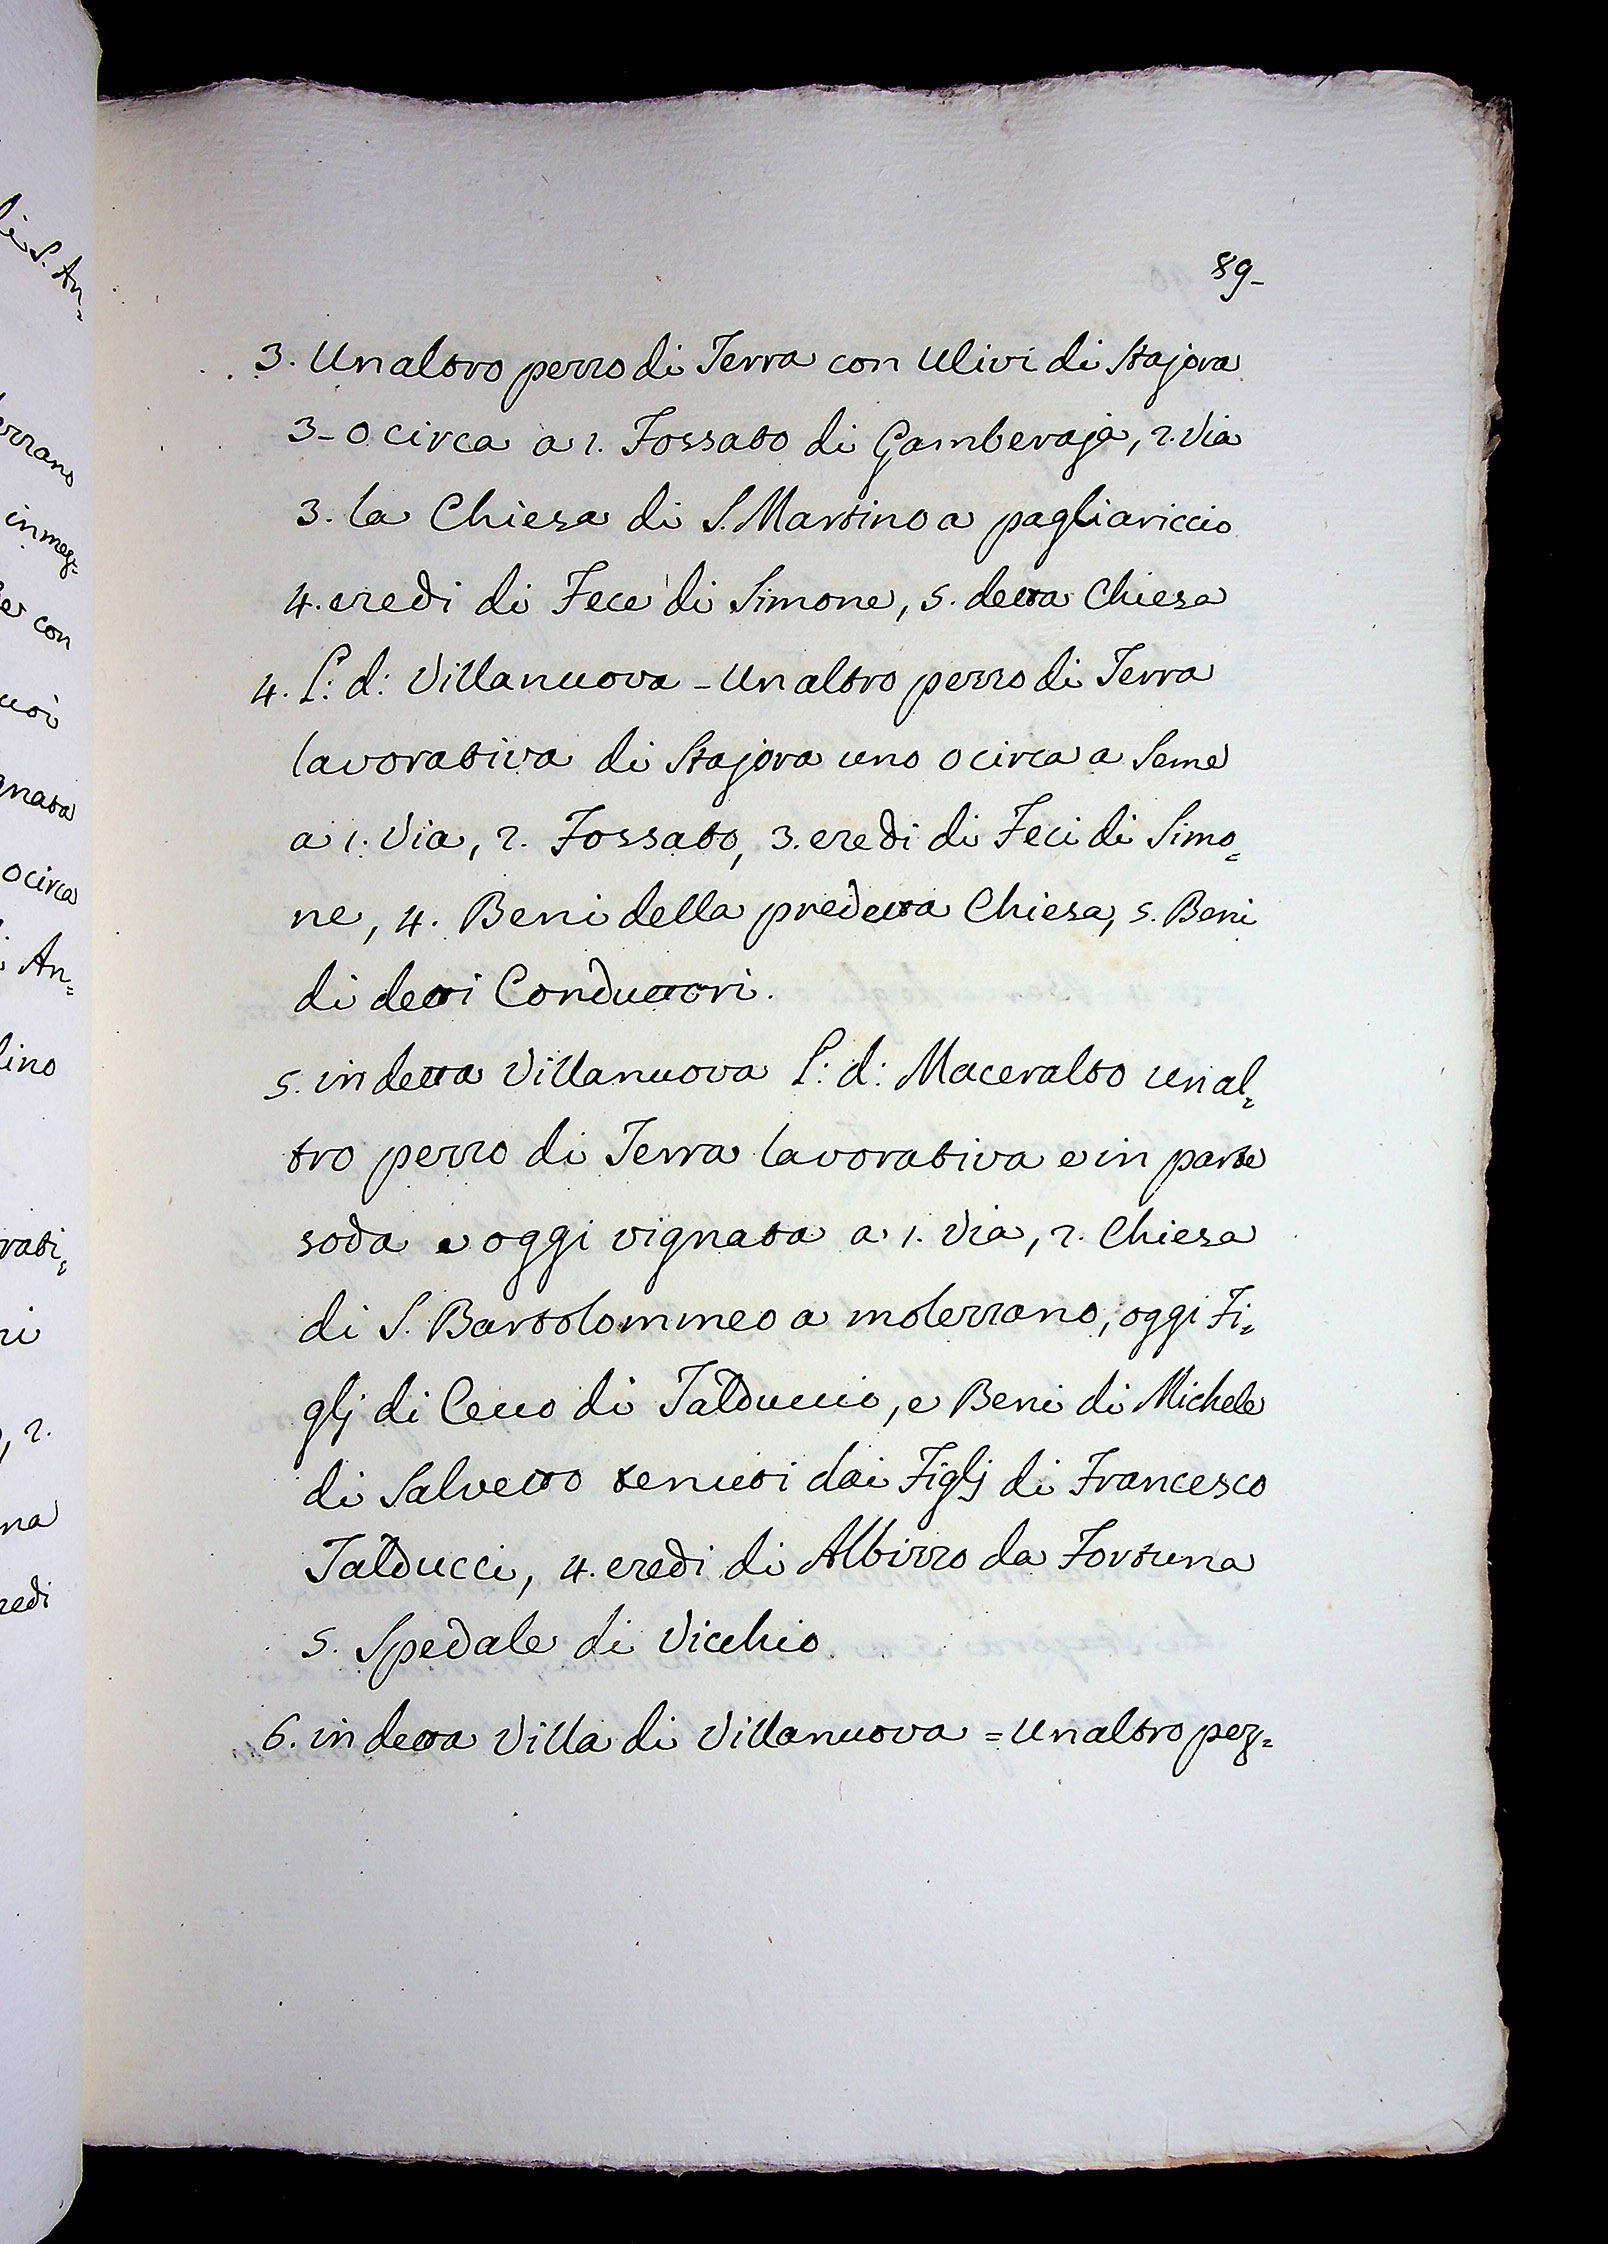 89-
3. Unaltro pezzo di Terra con Ulivi di Stajora
3-o circa a 1. Fossato di Gamberaja, 2. Via
3. la Chiesa di S. Martino a pagliariccio
4. eredi di Fece di Simone, 5. detta Chiesa
4. L: d: Villanuova - Unaltro pezzo di Terra
lavorativa di Stajora uno o circa a Seme
a 1. Via, 2. Fossato, 3. eredi di Feci di Simo=
ne, 4. Beni della predetta Chiesa, 5. Beni
di detti Conduttori.
5. in detta Villanuova L: d: Maceralto unal=
tro pezzo di Terra lavorativa e in parte
soda e oggi vignata a 1. Via, 2. Chiesa
di S. Bartolommeo a molezzano, oggi Fi=
glj di Cecco di Talduccio, e Beni di Michele
di Salvetto tenuti dai Figlj di Francesco
Talducci, 4. eredi di Albizzo da Fortuna
5. Spedale di Vicchio.
6. in detta Villa di Villanuova = Unaltro pez=